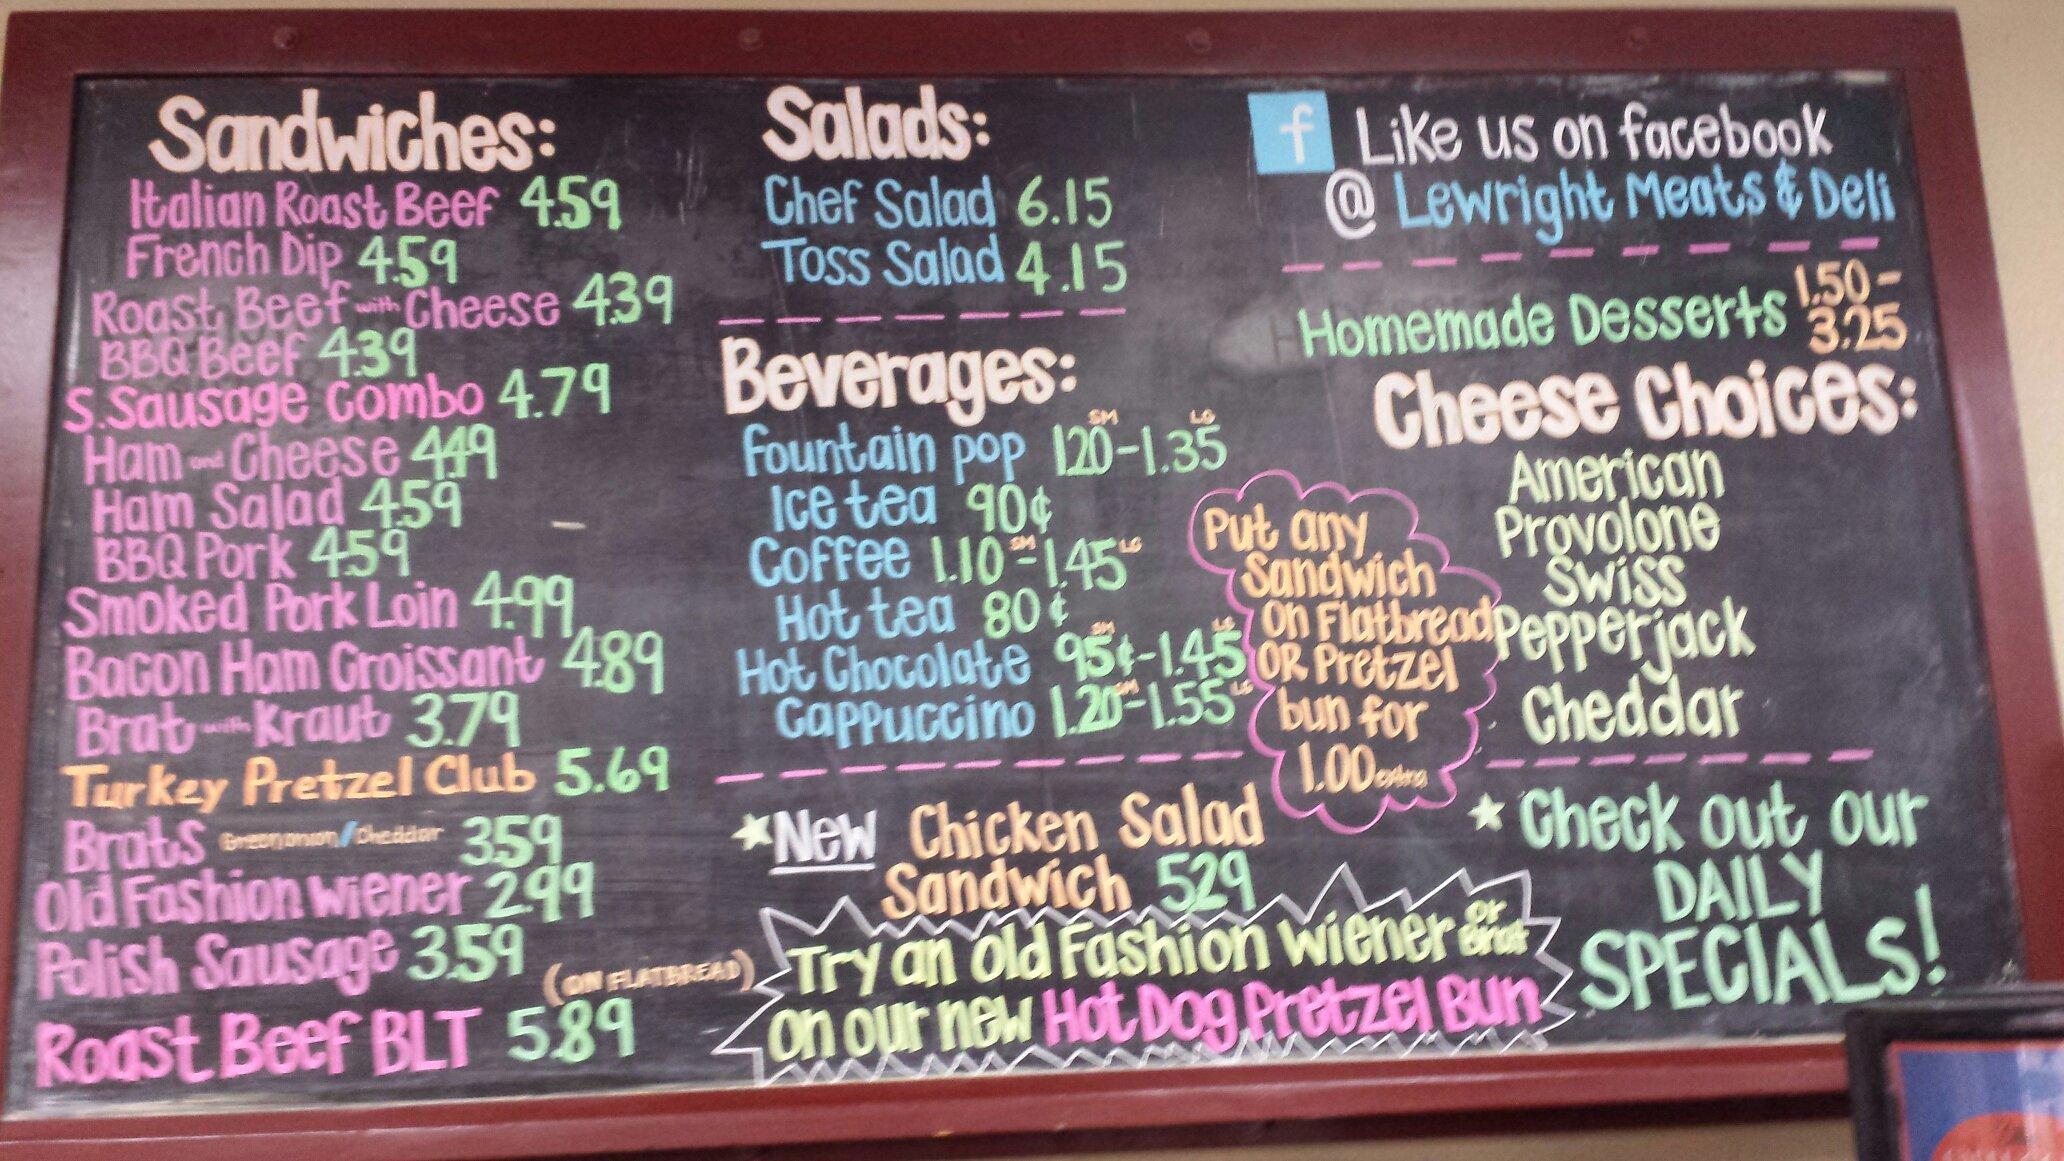 Sandwiches:
Italian Roast Beef 4.59
French Dip 4.59
Roast Beef with Cheese 4.39
BBQ Beef 4.39
S.Sausage Combo 4.79
Ham and Cheese 4.49
Ham Salad 4.59
BBQ Pork 4.59
Smoked Pork Loin 4.99
Bacon Ham Croissant 4.89
Brat with Kraut 3.79
Turkey Pretzel Club 5.69
Brats Green onion/Cheddar 3.59
Old Fashion Wiener 2.99
Polish Sausage 3.59
(ON FLATBREAD)
Roast Beef BLT 5.89
Salads:
Chef Salad 6.15
Toss Salad 4.15
Beverages:
SM LG
Fountain pop 1.20-1.35
Ice tea 90¢
Coffee 1.10 SM - 1.45 LG
Hot tea 80¢
SM LG
Hot Chocolate 95¢-1.45
Cappuccino 1.20 SM - 1.55 LG
New Chicken Salad
Sandwich 5.29
Try an Old Fashion Wiener or Brat
on our new Hot Dog Pretzel Bun
Put any
Sandwich
on Flatbread
OR Pretzel
bun for
1.00 extra
f Like us on facebook
@ Lewright Meats & Deli
Homemade Desserts 1.50-
3.25
Cheese Choices:
American
Provolone
Swiss
Pepperjack
Cheddar
Check out our
DAILY
SPECIALS!